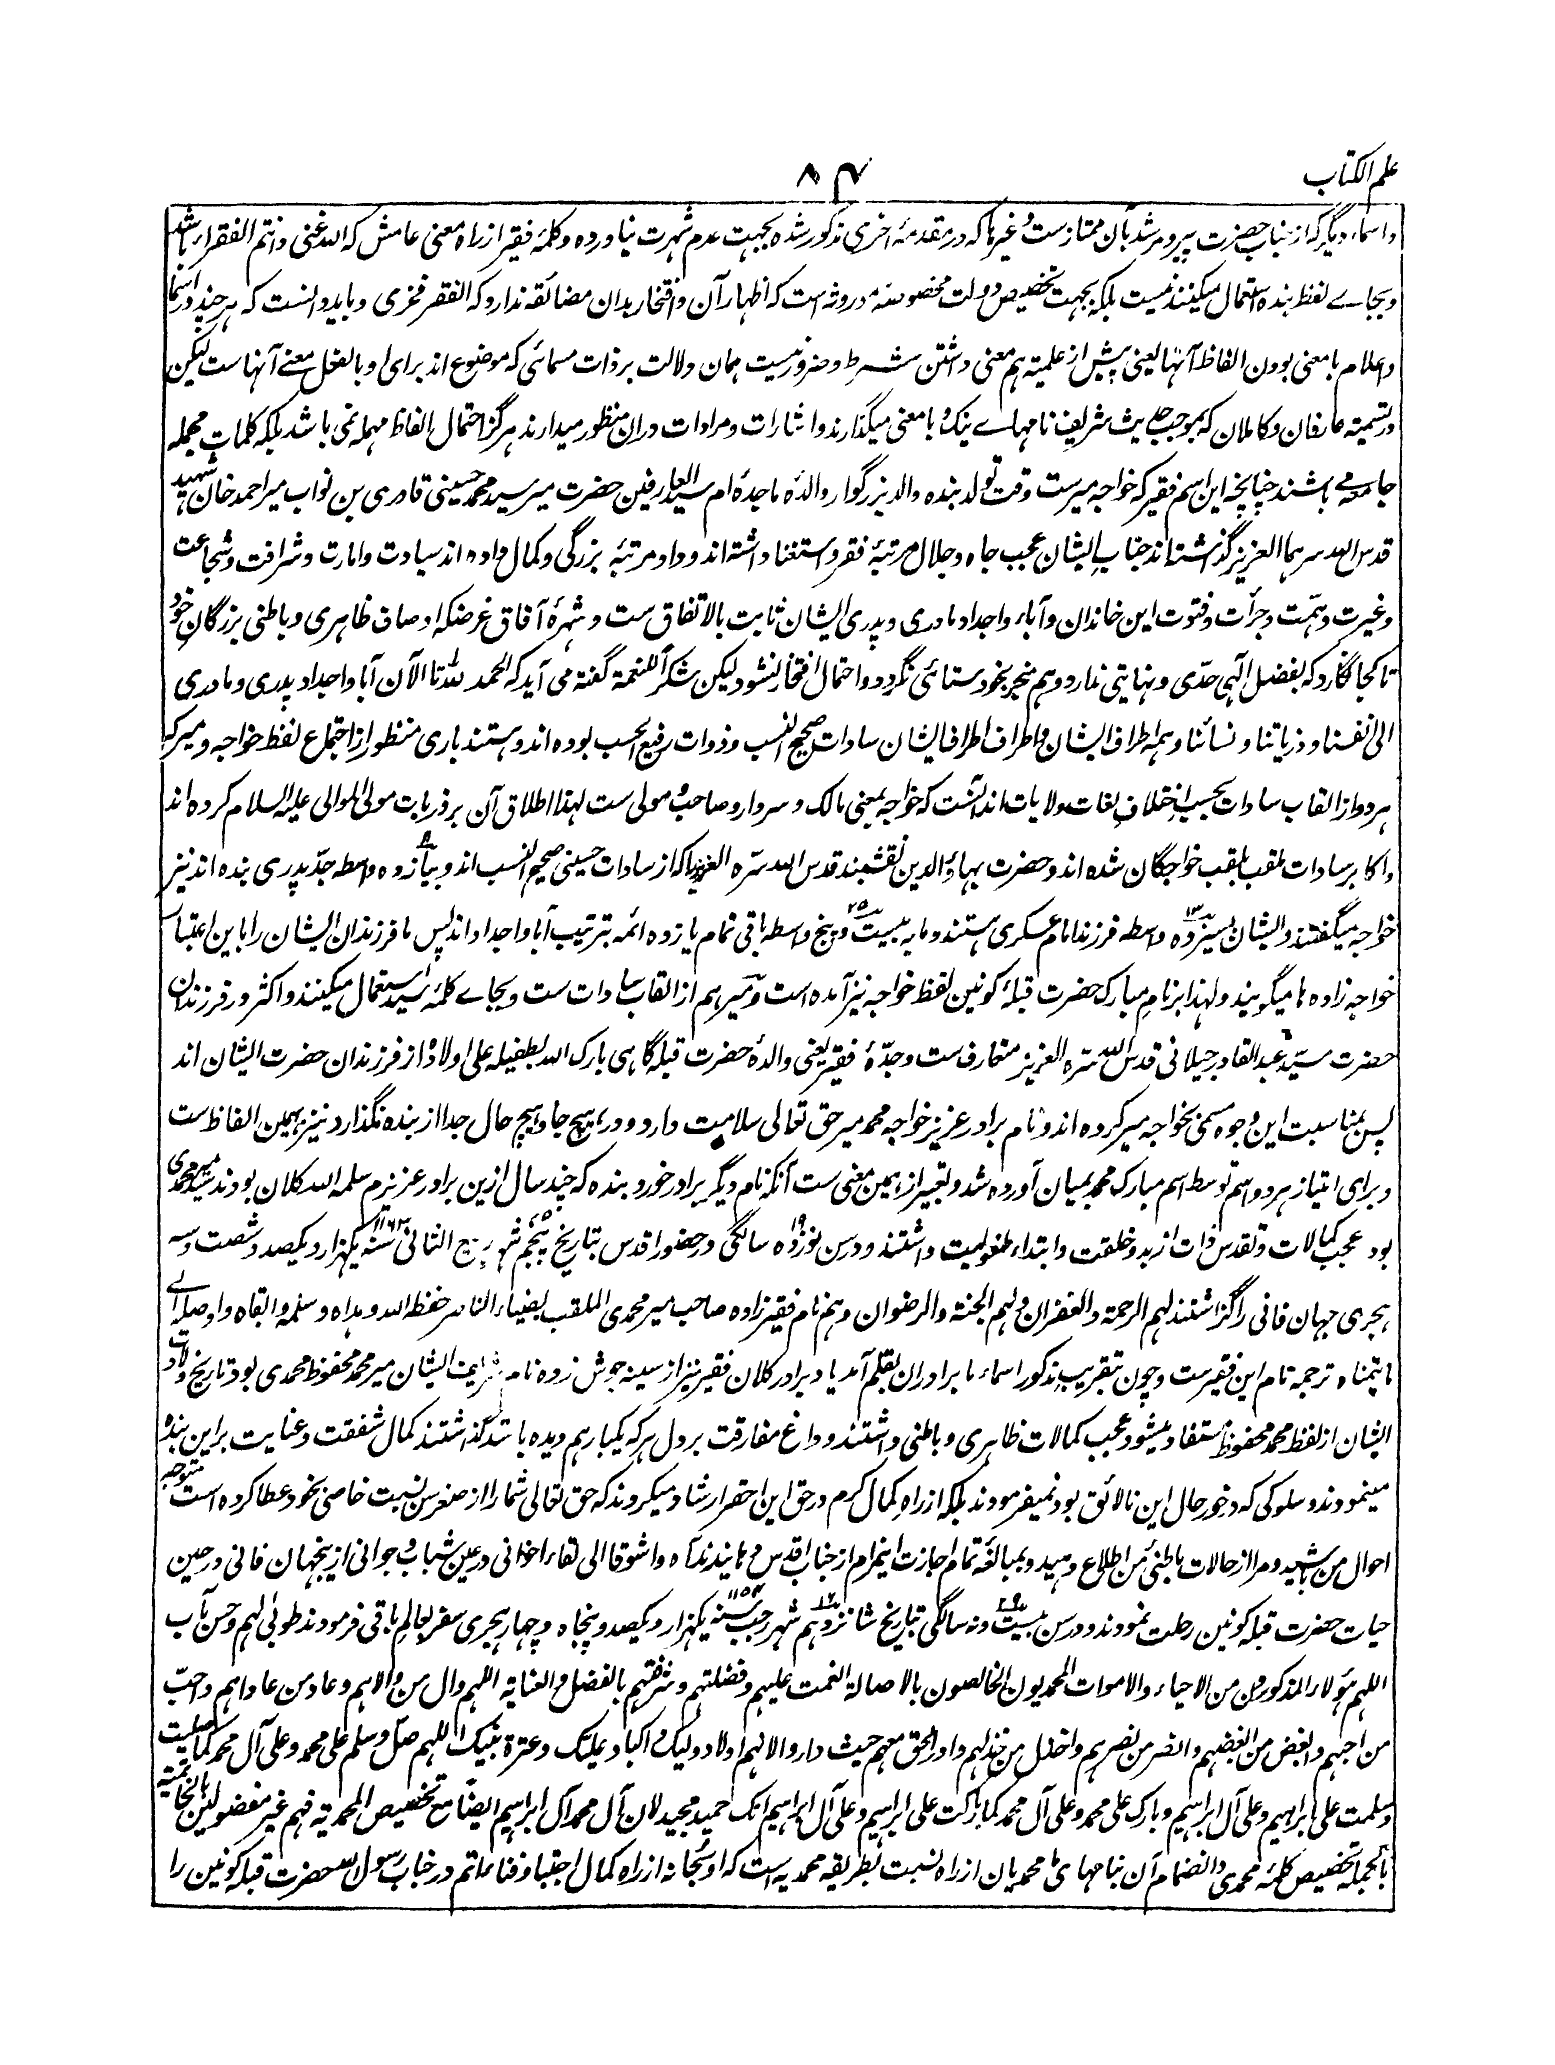 علم الکتاب
۸۴
و اسماء دیگر که از جناب حضرت پیر و مرشد بآن ممتازست و غیرها که در مقدمهٔ اخری مذکور شده بجهت عدم شهرت نیاورده و کلمهٔ فقیر از راه معنی عامش که الله غنی و انتم الفقراء باشد
و بجاے لفظ بنده استعمال میکنند نیست بلکه بجهت تخصیص دولت مخصوصه موروثه است که اظهار آن و افتخار بدان مضائقه ندارد که الفقر فخری و باید دانست که هر چند در اسما
و اعلام با معنی بودن الفاظ آنها یعنی پیش از علمیة هم معنی داشتن شرط و ضرور نیست همان دلالت بر ذات مسمائی که موضوع اند برای او بالفعل معنے آنهاست لیکن
در تسمیه عارفان و کاملان که بموجب حدیث شریف نامهاے نیک و با معنی میگذارند و اشارات و مرادات دران منظور میدارند هرگز احتمال الفاظ مهمله نمی باشد بلکه کلمات مجمله
جامعه مے باشند چنانچه این اسم فقیر که خواجه میرست وقت تولد بنده والد بزرگوار والدهٔ ماجده ام سید العارفین حضرت میر سید محمد حسینی قادری بن نواب میر احمد خان شهید
قدس الله سرهما العزیز گذاشته اند جناب ایشان عجب جاه و جلال مرتبهٔ فقر و استغنا داشته اند و داد مرتبهٔ بزرگی و کمال داده اند سیادت و امارت و شرافت و شجاعت
و غیرت و همّت و جرأت و فتوت این خاندان و آباء و اجداد مادری و پدری ایشان ثابت بالاتفاق ست و شهرهٔ آفاق غرضکه اوصاف ظاهری و باطنی بزرگان خود
تا کجا نگارد که بفضل الٰهی حدّی و نهایتی ندارد و هم منجر بخود ستائی نگردد و احتمال افتخار نشود لیکن شکراً للنعمة گفته می آید که الحمد لله تا الآن آبا و اجداد پدری و مادری
الی نفسنا و ذریاتنا و نسائنا و همه اطراف ایشان و اطراف اطراف ایشان سادات صحیح النسب و ذوات رفیع الحسب بوده اند و هستند باری منظور از اجتماع لفظ خواجه و میر که
هر دو از القاب سادات بحسب اختلاف لغات ولایات اند آنست که خواجه بمعنی مالک و سردار و صاحب و مولی ست لهذا اطلاق آن بر ذریات مولی الموالی علیه السلام کرده اند
و اکابر سادات ملقب بلقب خواجگان شده اند و حضرت بهاء الدین نقشبند قدس الله سرّه العزیز را که از سادات حسینی صحیح النسب اند و بیازده واسطه جدّ پدری بنده اند نیز
خواجه میگفتند و ایشان بسیزده واسطه فرزند امام عسکری هستند و ما به بیست و پنج واسطه باقی تمام یازده ائمه بترتیب آبا و اجداد اند پس ما فرزندان ایشان را باین اعتبار
خواجه زاده ها میگویند و لهذا بر نام مبارک حضرت قبلهٔ کونین لفظ خواجه نیز آمده است و میر هم از القاب سادات ست و بجاے کلمهٔ سید استعمال میکنند و اکثر در فرزندان
حضرت سید عبد القادر جیلانی قدس الله سره العزیز متعارف ست و جدّهٔ فقیر یعنی والدهٔ حضرت قبله گاهی بارک الله بطفیله علی اولاده از فرزندان حضرت ایشان اند
پس بمناسبت این وجوه مسمی بخواجه میر کرده اند و نام برادر عزیز خواجه محمد میر حق تعالی سلامت دارد و در هیچ جا و هیچ حال جدا از بنده نگذارد نیز بهمین الفاظ ست
و برای امتیاز هر دو اسم توسط اسم مبارک محمد بمیان آورده شد و تعبیر از همین معنی ست آنکه نام دیگر برادر خورد بنده که چند سال ازین برادر عزیزم سلمه الله کلان بودند سید میر محمدی
بود عجب کمالات و تقدس ذات از بدو خلقت و ابتداء طفولیت داشتند و در سن نوزده ۱۹ سالگی در حضور اقدس بتاریخ پنجم ۵ شهر ربیع الثانی سنه ۱۱۶۳ یکهزار و یکصد و شصت و سه
هجری جهان فانی را گزاشتند لهم الرحمة و الغفران و لهم الجنة والرضوان و هم نام فقیر زاده صاحب میر محمدی الملقب بضیاء الناصر حفظه الله و هداه و سلمه و ابقاه و اوصله الے
ما یتمناه ترجمه نام این فقیرست و چون بتقریب مذکور اسماء ما برادران بقلم آمد یاد برادر کلان فقیر نیز از سینه جوش زد نام شریف ایشان میر محمد محفوظ محمدی بود تاریخ ولادت
ایشان از لفظ محمد محفوظ مستفاد میشود عجب کمالات ظاهری و باطنی داشتند و داغ مفارقت بر دل هر که یکبار هم دیده باشد گذاشتند کمال شفقت و عنایت بر این بنده
مینمودند و سلوکی که در خور حال این نالائق بود نمیفرمودند بلکه از راه کمال کرم در حق این احقر ارشاد میکردند که حق تعالی شما را از صغر سن نسبت خاصی بخود عطا کرده است متوجه
احوال من باشید و مرا از حالات باطنی من اطلاع دهید و بمبالغه تمام اجازت اینرام از جناب اقدس و هانیدند آه واشوقا الی لقاء اخوانی در عین شباب و جوانی ازینجهان فانی در حین
حیات حضرت قبله کونین رحلت نمودند و در سن بیست و نه ۲۹ سالگی بتاریخ شانزدهم ۱۶ شهر رجب سنه ۱۱۵۴ یکهزار و یکصد و پنجاه و چهار هجری سفر بعالم باقی فرمودند طوبی لهم و حسن مآب
اللهم هؤلاء المذکورون من الاحیاء و الاموات المحمدیون الخالصون بالاصالة انعمت علیهم و فضلتهم و شرفتهم بالفضل و العنایة اللهم وال من والاهم و عاد من عاداهم و احبّ
من احبهم و ابغض من ابغضهم و انصر من نصرهم و اخذل من خذلهم و ادر الحق معهم حیث داروا لانهم اولاد ولیک و اکباد علیک و عترة نبیک اللهم صلّ و سلم علی محمد و علی آل محمد کما صلیت
و سلمت علی ابراهیم و علی آل ابراهیم و بارک علی محمد و علی آل محمد کما بارکت علی ابراهیم و علی آل ابراهیم انک حمید مجید لان آل محمد آل ابراهیم ایضاً مع تخصیص المحمدیة فهم غیر مفضولین بالخاتمیة
بالجمله تخصیص کلمهٔ محمدی و انضمام آن بنامهای ما محمدیان از راه نسبت بطریقه محمدیه است که او سبحانه از راه کمال اجتبا و فناء اتم در جناب رسول الله حضرت قبله کونین را